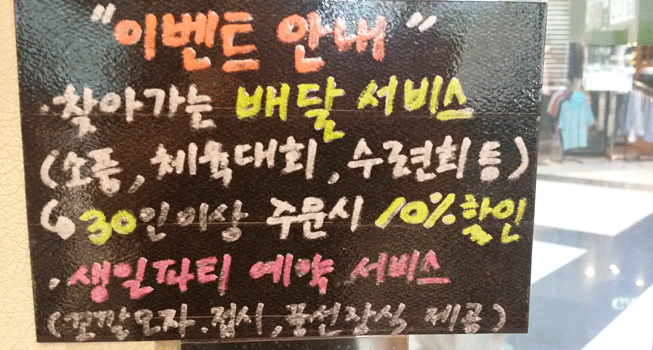 "이벤트 안내"
·찾아가는 배달 서비스
(소풍, 체육대회, 수련회 등)
↳ 30인이상 주문시 10% 할인
·생일파티 예약 서비스
(꼬깔모자.접시,풍선장식 제공)